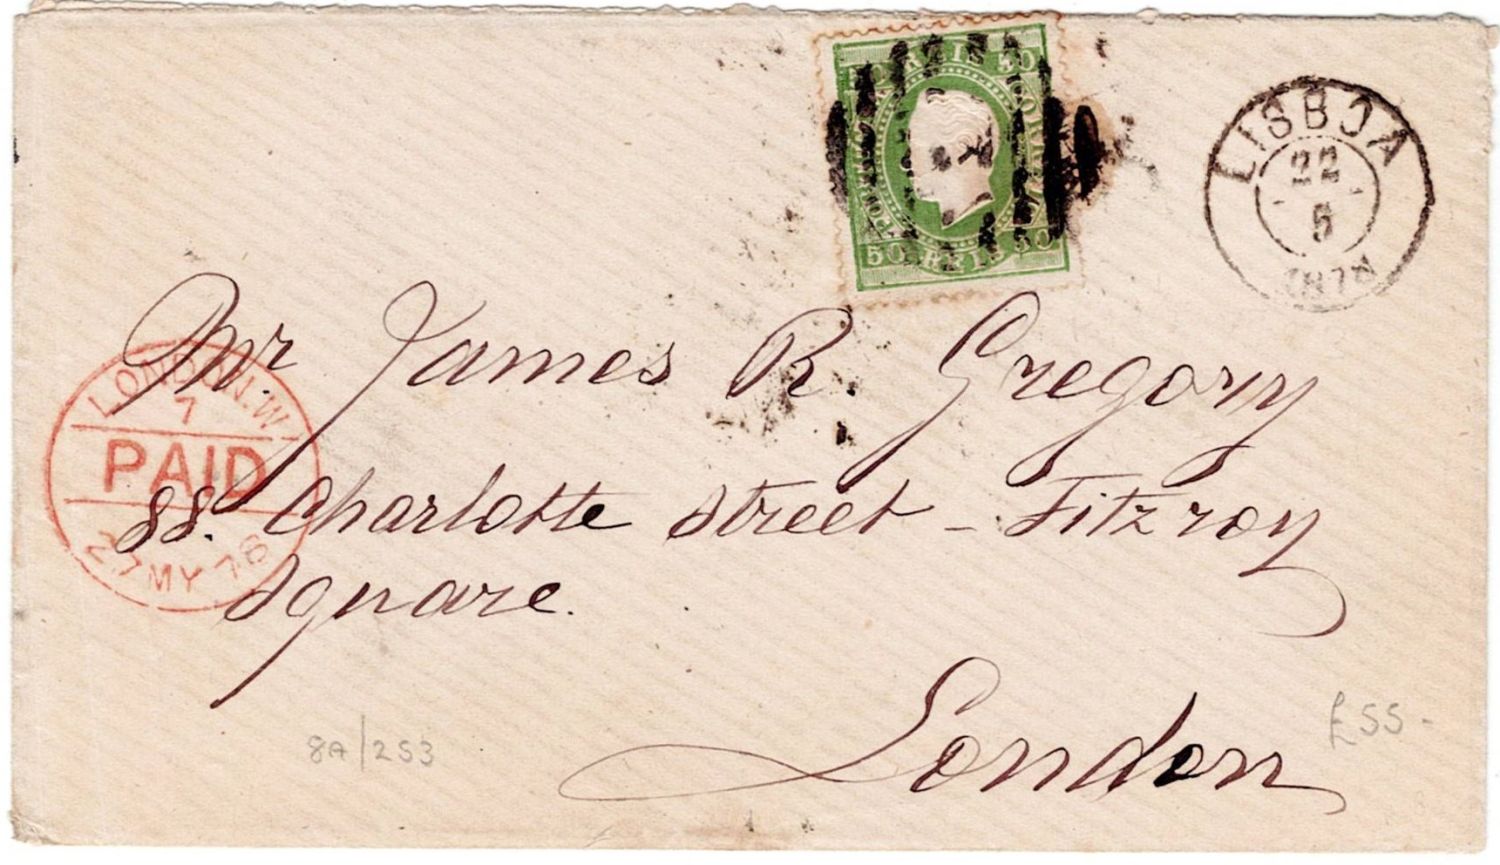 50 REIS 50
CORREIO
50 REIS 50
LISBOA
22
5
1878
Mr James R. Gregory
LONDON.W
7
PAID
27 MY 78
88. Charlotte Street - Fitzroy
Square.
London
£55-
8A/253